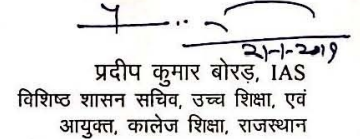 21-1-2019
प्रदीप कुमार बोरड़, IAS
विशिष्ठ शासन सचिव, उच्च शिक्षा, एवं
आयुक्त, कालेज शिक्षा, राजस्थान